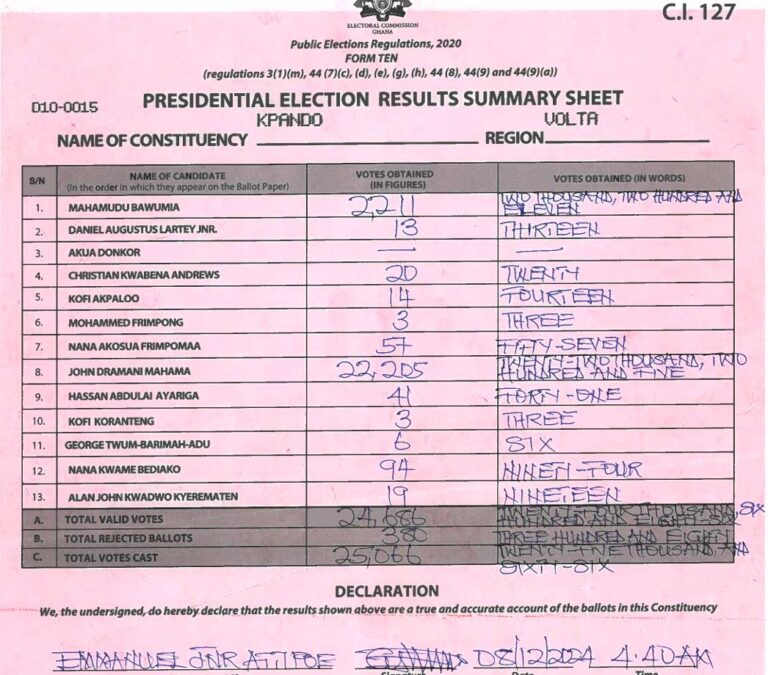 ELECTORAL COMMISSION
GHANA
C.I. 127
Public Elections Regulations, 2020
FORM TEN
(regulations 3(1)(m), 44 (7)(c), (d), (e), (g), (h), 44 (8), 44(9) and 44(9)(a))
D10-0015
PRESIDENTIAL ELECTION RESULTS SUMMARY SHEET
NAME OF CONSTITUENCY KPANDO REGION VOLTA
S/N NAME OF CANDIDATE (In the order in which they appear on the Ballot Paper) VOTES OBTAINED (IN FIGURES) VOTES OBTAINED (IN WORDS)
1. MAHAMUDU BAWUMIA 2,211 TWO THOUSAND, TWO HUNDRED AND ELEVEN
2. DANIEL AUGUSTUS LARTEY JNR. 13 THIRTEEN
3. AKUA DONKOR — —
4. CHRISTIAN KWABENA ANDREWS 20 TWENTY
5. KOFI AKPALOO 14 FOURTEEN
6. MOHAMMED FRIMPONG 3 THREE
7. NANA AKOSUA FRIMPOMAA 57 FIFTY-SEVEN
8. JOHN DRAMANI MAHAMA 22,205 TWENTY-TWO THOUSAND, TWO HUNDRED AND FIVE
9. HASSAN ABDULAI AYARIGA 41 FORTY-ONE
10. KOFI KORANTENG 3 THREE
11. GEORGE TWUM-BARIMAH-ADU 6 SIX
12. NANA KWAME BEDIAKO 94 NINETY-FOUR
13. ALAN JOHN KWADWO KYEREMATEN 19 NINETEEN
A. TOTAL VALID VOTES 24,686 TWENTY-FOUR THOUSAND, SIX HUNDRED AND EIGHTY-SIX
B. TOTAL REJECTED BALLOTS 380 THREE HUNDRED AND EIGHTY
C. TOTAL VOTES CAST 25,066 TWENTY-FIVE THOUSAND, AND SIXTY-SIX
DECLARATION
We, the undersigned, do hereby declare that the results shown above are a true and accurate account of the ballots in this Constituency
EMMANUEL JNR ATTIPOE 08/12/2024 4.40AM